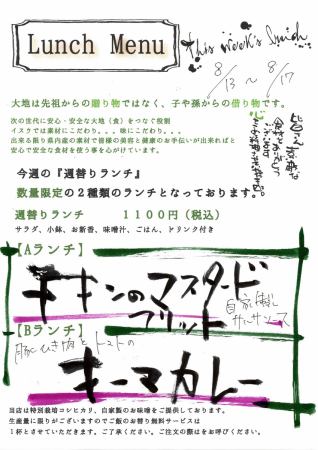 Lunch Menu
This week's lunch
8/13 〜 8/17
大地は先祖からの贈り物ではなく、子や孫からの借り物です。
次の世代に安心・安全な大地（食）をつなぐ役割
イスクでは素材にこだわり。。。味にこだわり。。。
出来る限り県内産の素材で皆様の美容と健康のお手伝いが出来ればと
安心で安全な食材を使う事を心がけています。
今週の『週替りランチ』
数量限定の２種類のランチとなっております。
週替りランチ　１１００円（税込）
サラダ、小鉢、お新香、味噌汁、ごはん、ドリンク付き
【Aランチ】
チキンのマスタード
フリット
自家製
サルサソース
【Bランチ】
豚ひき肉とトマトの
キーマカレー
当店は特別栽培コシヒカリ、自家製のお味噌をご提供しております。
生産量に限りがございますのでご飯のお替り無料サービスは
１杯とさせていただきます。ご了承ください。ご注文の際はをお呼びください。